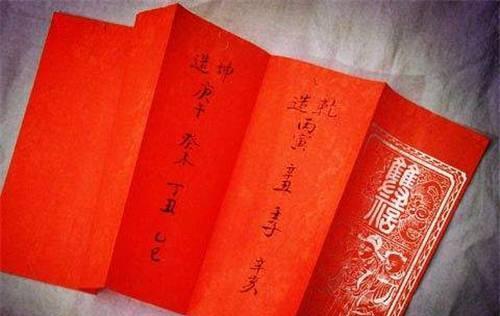 雙福
乾
造 丙寅 辛丑 壬子 辛亥
坤
造 庚午 癸未 丁丑 乙巳